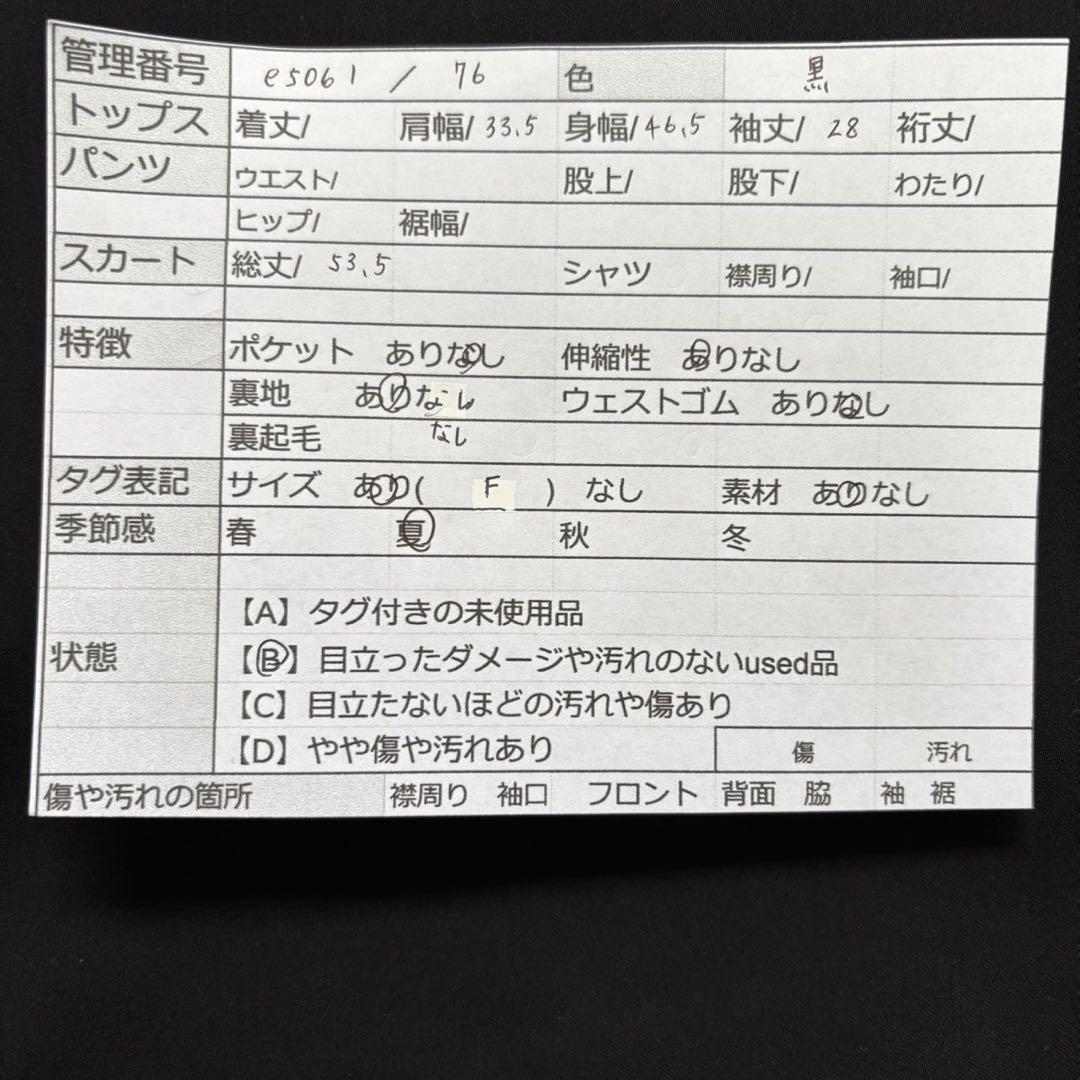 管理番号 e5061 / 76 色 黒
トップス 着丈/ 肩幅/ 33.5 身幅/ 46.5 袖丈/ 28 裄丈/
パンツ ウエスト/ 股上/ 股下/ わたり/
ヒップ/ 裾幅/
スカート 総丈/ 53.5 シャツ 襟周り/ 袖口/
特徴 ポケット ありなし 伸縮性 ありなし
裏地 ありなし ウェストゴム ありなし
裏起毛 なし
タグ表記 サイズ あり( F ) なし 素材 ありなし
季節感 春 夏 秋 冬
【A】タグ付きの未使用品
状態 【B】目立ったダメージや汚れのないused品
【C】目立たないほどの汚れや傷あり
【D】やや傷や汚れあり 傷 汚れ
傷や汚れの箇所 襟周り 袖口 フロント 背面 脇 袖 裾